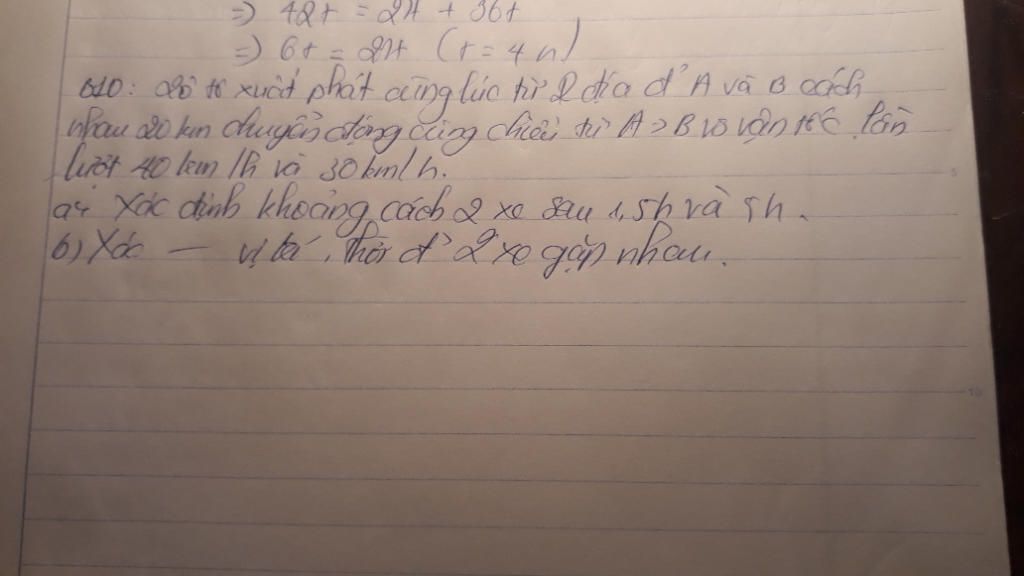 =) 42t = 24 + 36t
=) 6t = 24 (t = 4 h)
B10: 2 ô tô xuất phát cùng lúc từ 2 địa đ' A và B cách
nhau 20 km chuyển động cùng chiều từ A > B vs vận tốc lần
lượt 40 km/h và 30 km/h.
a, Xác định khoảng cách 2 xe sau 1,5h và 5h.
b) Xác — vị trí, thời đ' 2 xe gặp nhau.
5
10